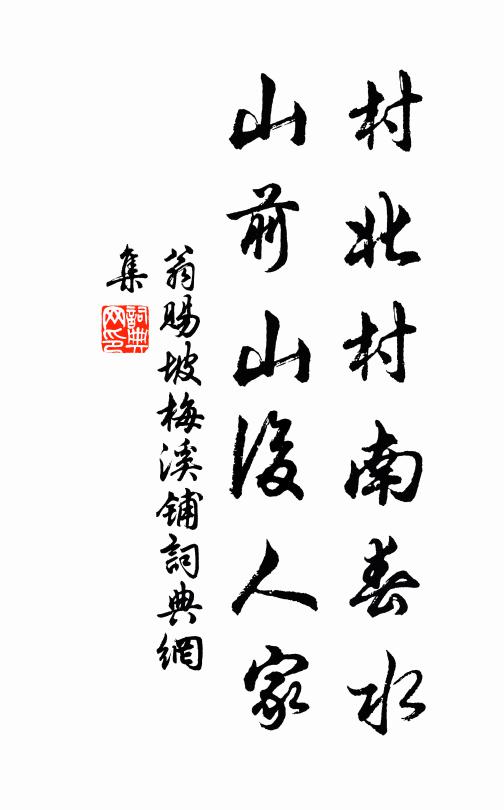 村北村南春水
山前山後人家
翁賜坡梅溪鋪詞典網
集
詞典
网印